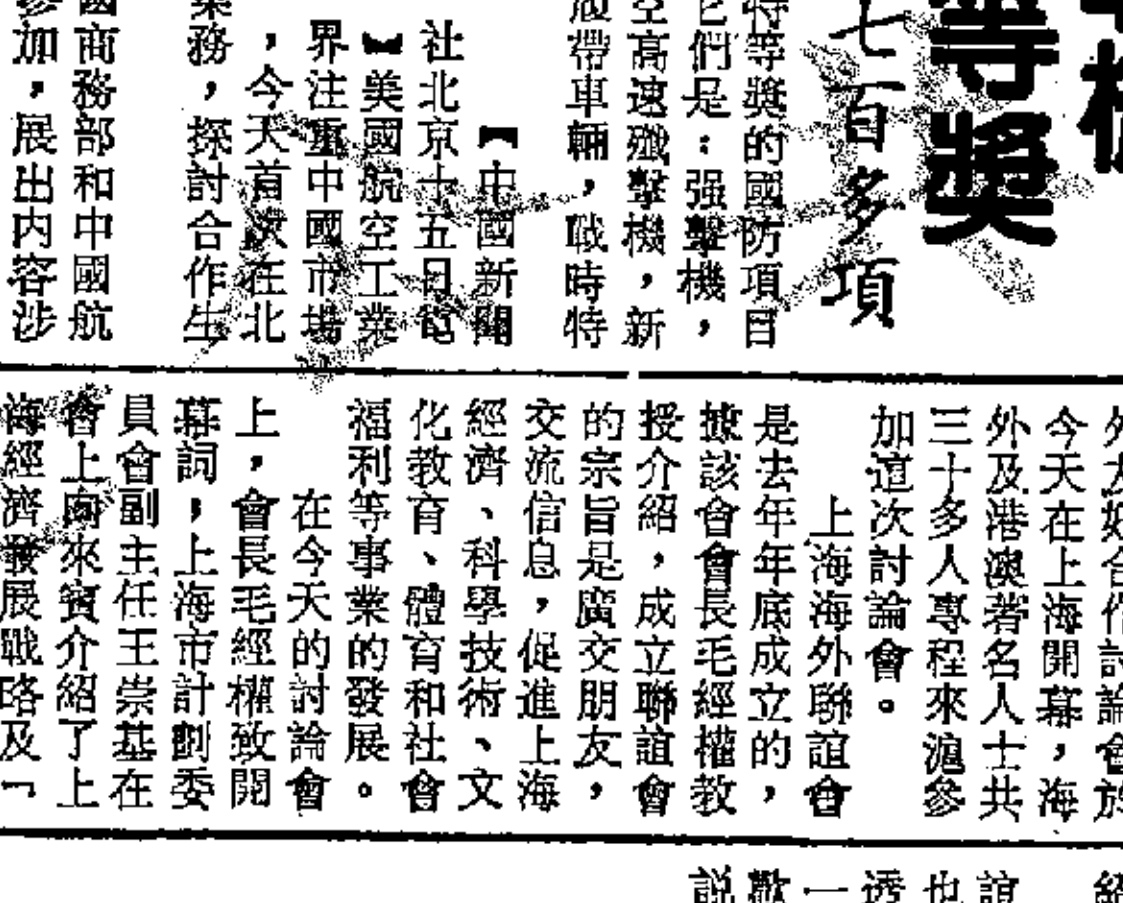 等獎
七百多項
特等獎的國防項目
它們是：强擊機，
空高速殲擊機，新
履帶車輛，戰時特
【中國新聞
社北京十五日電
】美國航空工業
界注重中國市場
，今天首次在北
業務，探討合作生
國商務部和中國航
參加，展出内容涉
外友好合作討論會於
今天在上海開幕，海
外及港澳著名人士共
三十多人專程來滬參
加這次討論會。
上海海外聯誼會
是去年年底成立的，
據該會會長毛經權教
授介紹，成立聯誼會
的宗旨是廣交朋友，
交流信息，促進上海
經濟、科學技術、文
化教育、體育和社會
福利等事業的發展。
在今天的討論會
上，會長毛經權致開
幕詞，上海市計劃委
員會副主任王崇基在
會上向來賓介紹了上
海經濟發展戰略及「
誼
也
透
一
歡
説